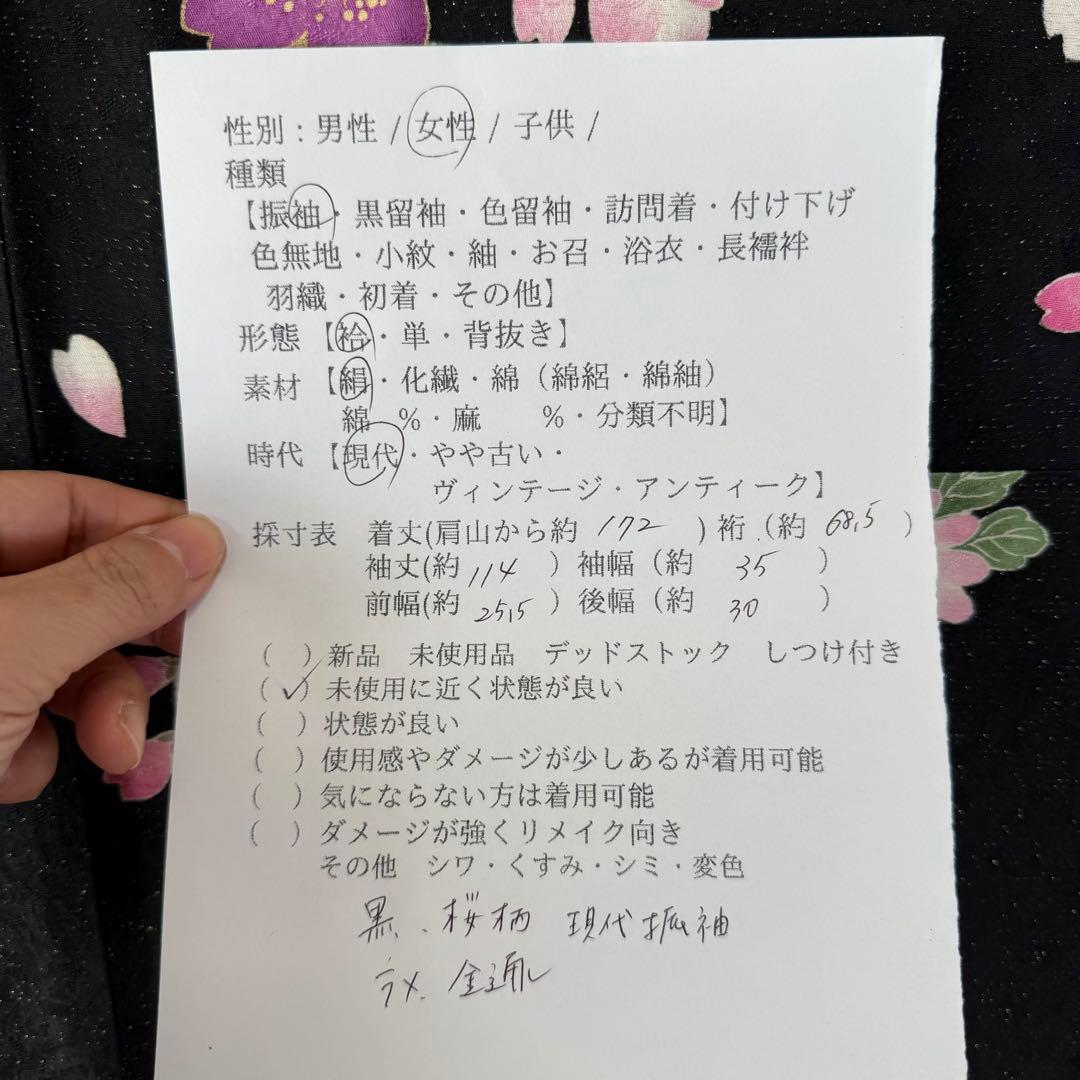 性別：男性 / 女性 / 子供 /
種類
【振袖・黒留袖・色留袖・訪問着・付け下げ
色無地・小紋・紬・お召・浴衣・長襦袢
羽織・初着・その他】
形態【袷・単・背抜き】
素材【絹・化繊・綿（綿絽・綿紬）
綿　％・麻　　％・分類不明】
時代【現代・やや古い・
ヴィンテージ・アンティーク】
採寸表　着丈(肩山から約 172 ) 裄.（約 68,5 ）
袖丈(約 114 ）袖幅（約 35 ）
前幅(約 25,5 ）後幅（約 30 ）
（　）新品　未使用品　デッドストック　しつけ付き
（✓）未使用に近く状態が良い
（　）状態が良い
（　）使用感やダメージが少しあるが着用可能
（　）気にならない方は着用可能
（　）ダメージが強くリメイク向き
その他　シワ・くすみ・シミ・変色
黒、桜柄　現代振袖
ラメ、金通し